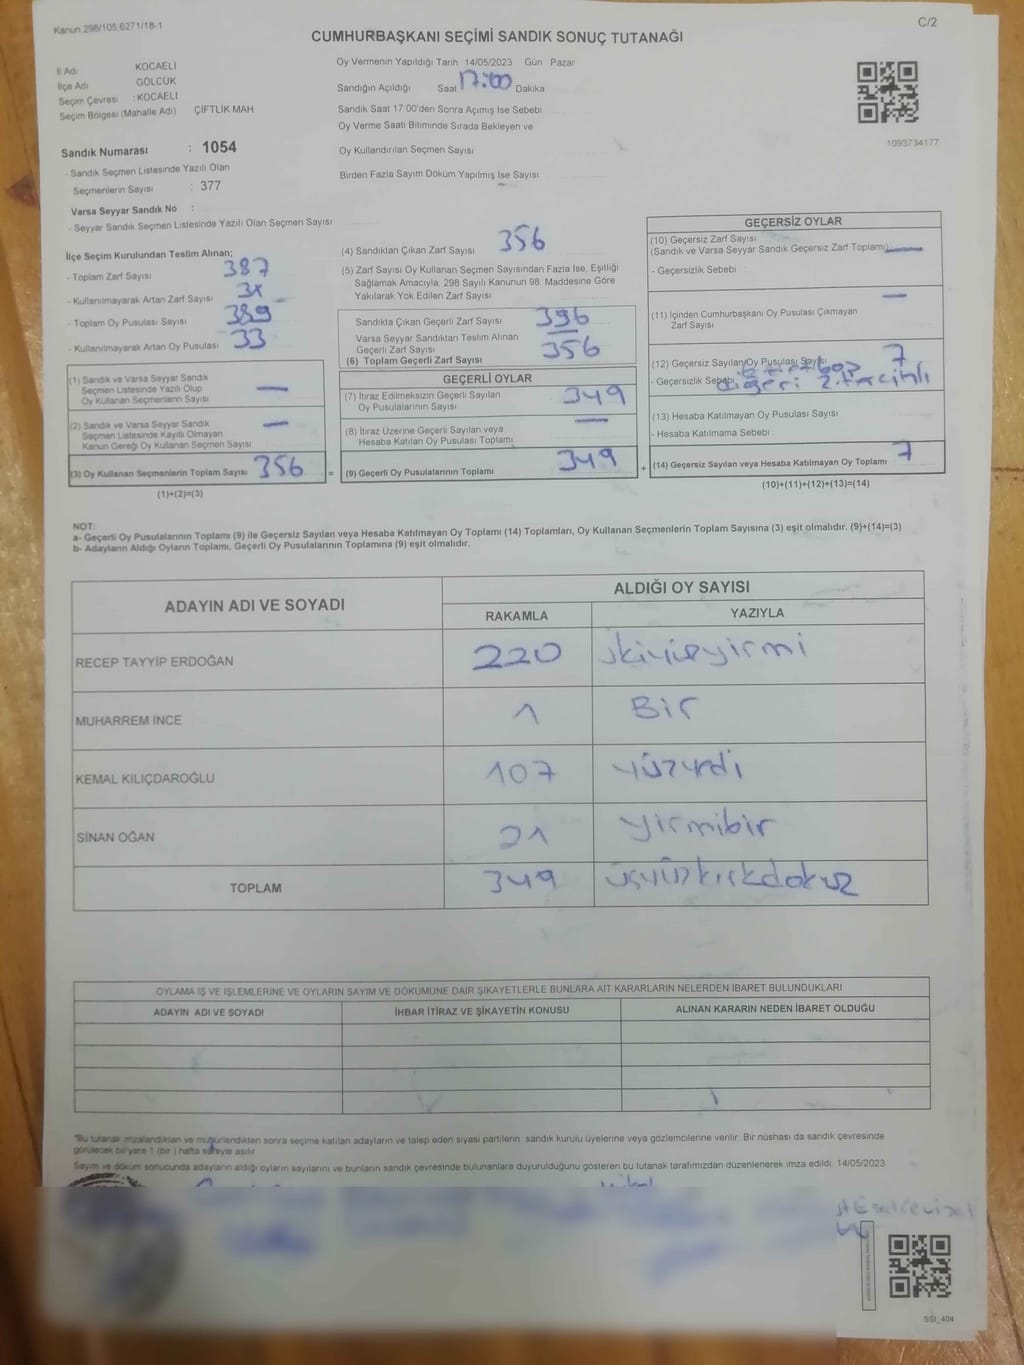 Kanun 298/105 6271/18-1
C/2
CUMHURBAŞKANI SEÇİMİ SANDIK SONUÇ TUTANAĞI
İl Adı KOCAELİ
İlçe Adı GÖLCÜK
Seçim Çevresi : KOCAELİ
Seçim Bölgesi (Mahalle Adı) ÇİFTLİK MAH.
Sandık Numarası : 1054
- Sandık Seçmen Listesinde Yazılı Olan
Seçmenlerin Sayısı : 377
Varsa Seyyar Sandık No :
- Seyyar Sandık Seçmen Listesinde Yazılı Olan Seçmen Sayısı
Oy Vermenin Yapıldığı Tarih 14/05/2023 Gün Pazar
Sandığın Açıldığı Saat 17:00 Dakika
Sandık Saat 17 00'den Sonra Açımış İse Sebebi
Oy Verme Saati Bitiminde Sırada Bekleyen ve
Oy Kullandırılan Seçmen Sayısı
Birden Fazla Sayım Döküm Yapılmış İse Sayısı
1093734177
İlçe Seçim Kurulundan Teslim Alınan;
- Toplam Zarf Sayısı 387
- Kullanılmayarak Artan Zarf Sayısı
- Toplam Oy Pusulası Sayısı 389
- Kullanılmayarak Artan Oy Pusulası 33
(1) Sandık ve Varsa Seyyar Sandık
Seçmen Listesinde Yazılı Olup
Oy Kullanan Seçmenlerin Sayısı —
(2) Sandık ve Varsa Seyyar Sandık
Seçmen Listesinde Kayıtlı Olmayan
Kanun Gereği Oy Kullanan Seçmen Sayısı —
(3) Oy Kullanan Seçmenlerin Toplam Sayısı 356 =
(1)+(2)=(3)
(4) Sandıktan Çıkan Zarf Sayısı 356
(5) Zarf Sayısı Oy Kullanan Seçmen Sayısından Fazla İse, Eşitliği
Sağlamak Amacıyla, 298 Sayılı Kanunun 98. Maddesine Göre
Yakılarak Yok Edilen Zarf Sayısı
Sandıkta Çıkan Geçerli Zarf Sayısı 396
Varsa Seyyar Sandıktan Teslim Alınan
Geçerli Zarf Sayısı
(6) Toplam Geçerli Zarf Sayısı 356
GEÇERLİ OYLAR
(7) İtiraz Edilmeksizin Geçerli Sayılan
Oy Pusulalarının Sayısı 349
(8) İtiraz Üzerine Geçerli Sayılan veya
Hesaba Katılan Oy Pusulası Toplamı —
(9) Geçerli Oy Pusulalarının Toplamı 349 +
GEÇERSİZ OYLAR
(10) Geçersiz Zarf Sayısı
(Sandık ve Varsa Seyyar Sandık Geçersiz Zarf Toplamı) —
- Geçersizlik Sebebi
—
(11) İçinden Cumhurbaşkanı Oy Pusulası Çıkmayan
Zarf Sayısı
(12) Geçersiz Sayılan Oy Pusulası Sayısı 7
- Geçersizlik Sebebi diğeri 2. tercihli
(13) Hesaba Katılmayan Oy Pusulası Sayısı
- Hesaba Katılmama Sebebi
(14) Geçersiz Sayılan veya Hesaba Katılmayan Oy Toplamı 7
(10)+(11)+(12)+(13)=(14)
NOT:
a- Geçerli Oy Pusulalarının Toplamı (9) ile Geçersiz Sayılan veya Hesaba Katılmayan Oy Toplamı (14) Toplamları, Oy Kullanan Seçmenlerin Toplam Sayısına (3) eşit olmalıdır. (9)+(14)=(3)
b- Adayların Aldığı Oyların Toplamı, Geçerli Oy Pusulalarının Toplamına (9) eşit olmalıdır.
ADAYIN ADI VE SOYADI
ALDIĞI OY SAYISI
RAKAMLA YAZIYLA
RECEP TAYYİP ERDOĞAN 220 ikiyüzyirmi
MUHARREM İNCE 1 Bir
KEMAL KILIÇDAROĞLU 107 yüzyrdi
SİNAN OĞAN 21 yirmibir
TOPLAM 349 üçyüzkırkdokuz
OYLAMA İŞ VE İŞLEMLERİNE VE OYLARIN SAYIM VE DÖKÜMÜNE DAİR ŞİKAYETLERLE BUNLARA AİT KARARLARIN NELERDEN İBARET BULUNDUKLARI
ADAYIN ADI VE SOYADI İHBAR İTİRAZ VE ŞİKAYETİN KONUSU ALINAN KARARIN NEDEN İBARET OLDUĞU
*Bu tutanak imzalandıktan ve mühürlendikten sonra seçime katılan adayların ve talep eden siyasi partilerin sandık kurulu üyelerine veya gözlemcilerine verilir. Bir nüshası da sandık çevresinde
görülecek bir yere 1 (bir ) hafta süreyle asılır
Sayım ve döküm sonucunda adayların aldığı oyların sayılarını ve bunların sandık çevresinde bulunanlara duyurulduğunu gösteren bu tutanak tarafımızdan düzenlenerek imza edildi. 14/05/2023
SSI_404